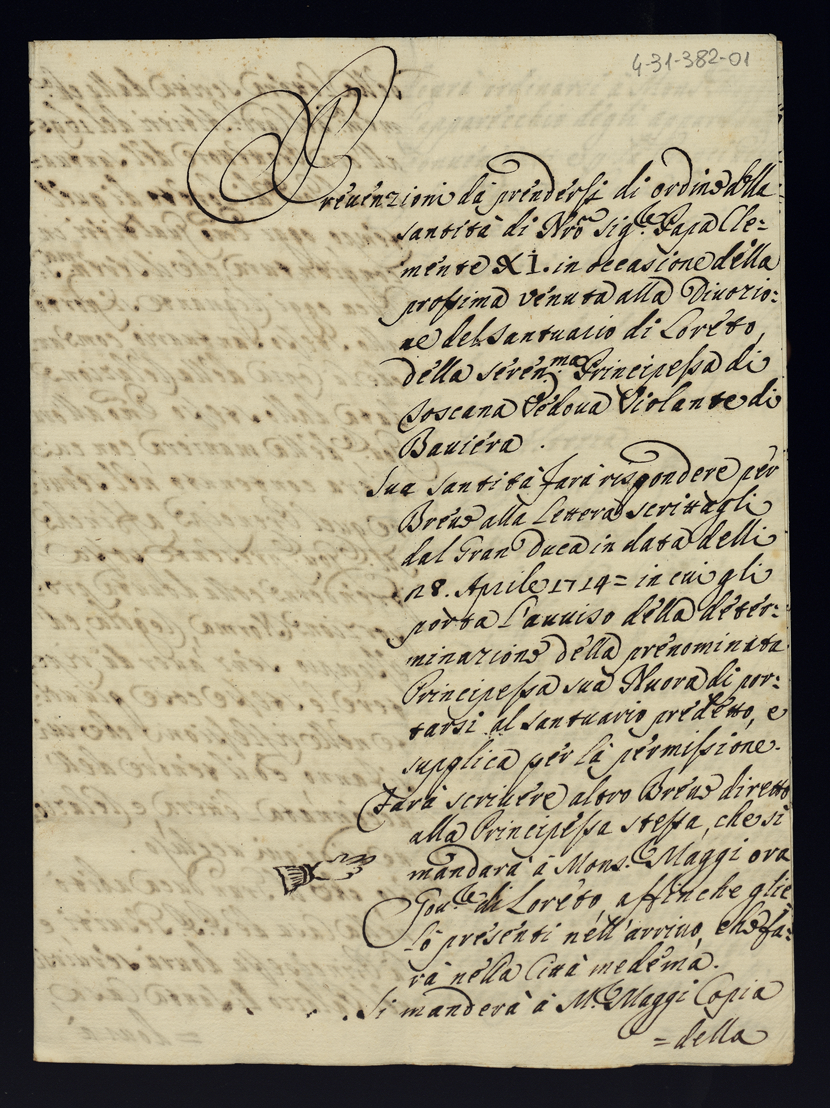 4-31-382-01
Prevenzioni da prendersi di ordine della
santità di Nrõ Sig.re Papa Cle=
mente XI. in occasione della
prossima venuta alla Divozio:
ne del Santuario di Loreto,
della seren.ma Principessa di
Toscana Vedova Violante di
Baviera.
Sua santità farà rispondere per
Breve alla Lettera scrittagli
dal Gran Duca in data delli
28. Aprile 1714= in cui gli
porta l'avviso della deter-
minazione della prenominata
Principessa sua Nuora di por-
tarsi al santuario predetto, e
supplica per la permissione.
Farà scrivere altro Breve diretto
alla Principessa stessa, che si
mandarà à Mons.re Maggi ora
Gou.re di Loreto, affinche glie
lo presenti nell'arrivo, che fa:
rà nella Città medema.
Si manderà à M.re Maggi Copia
=della